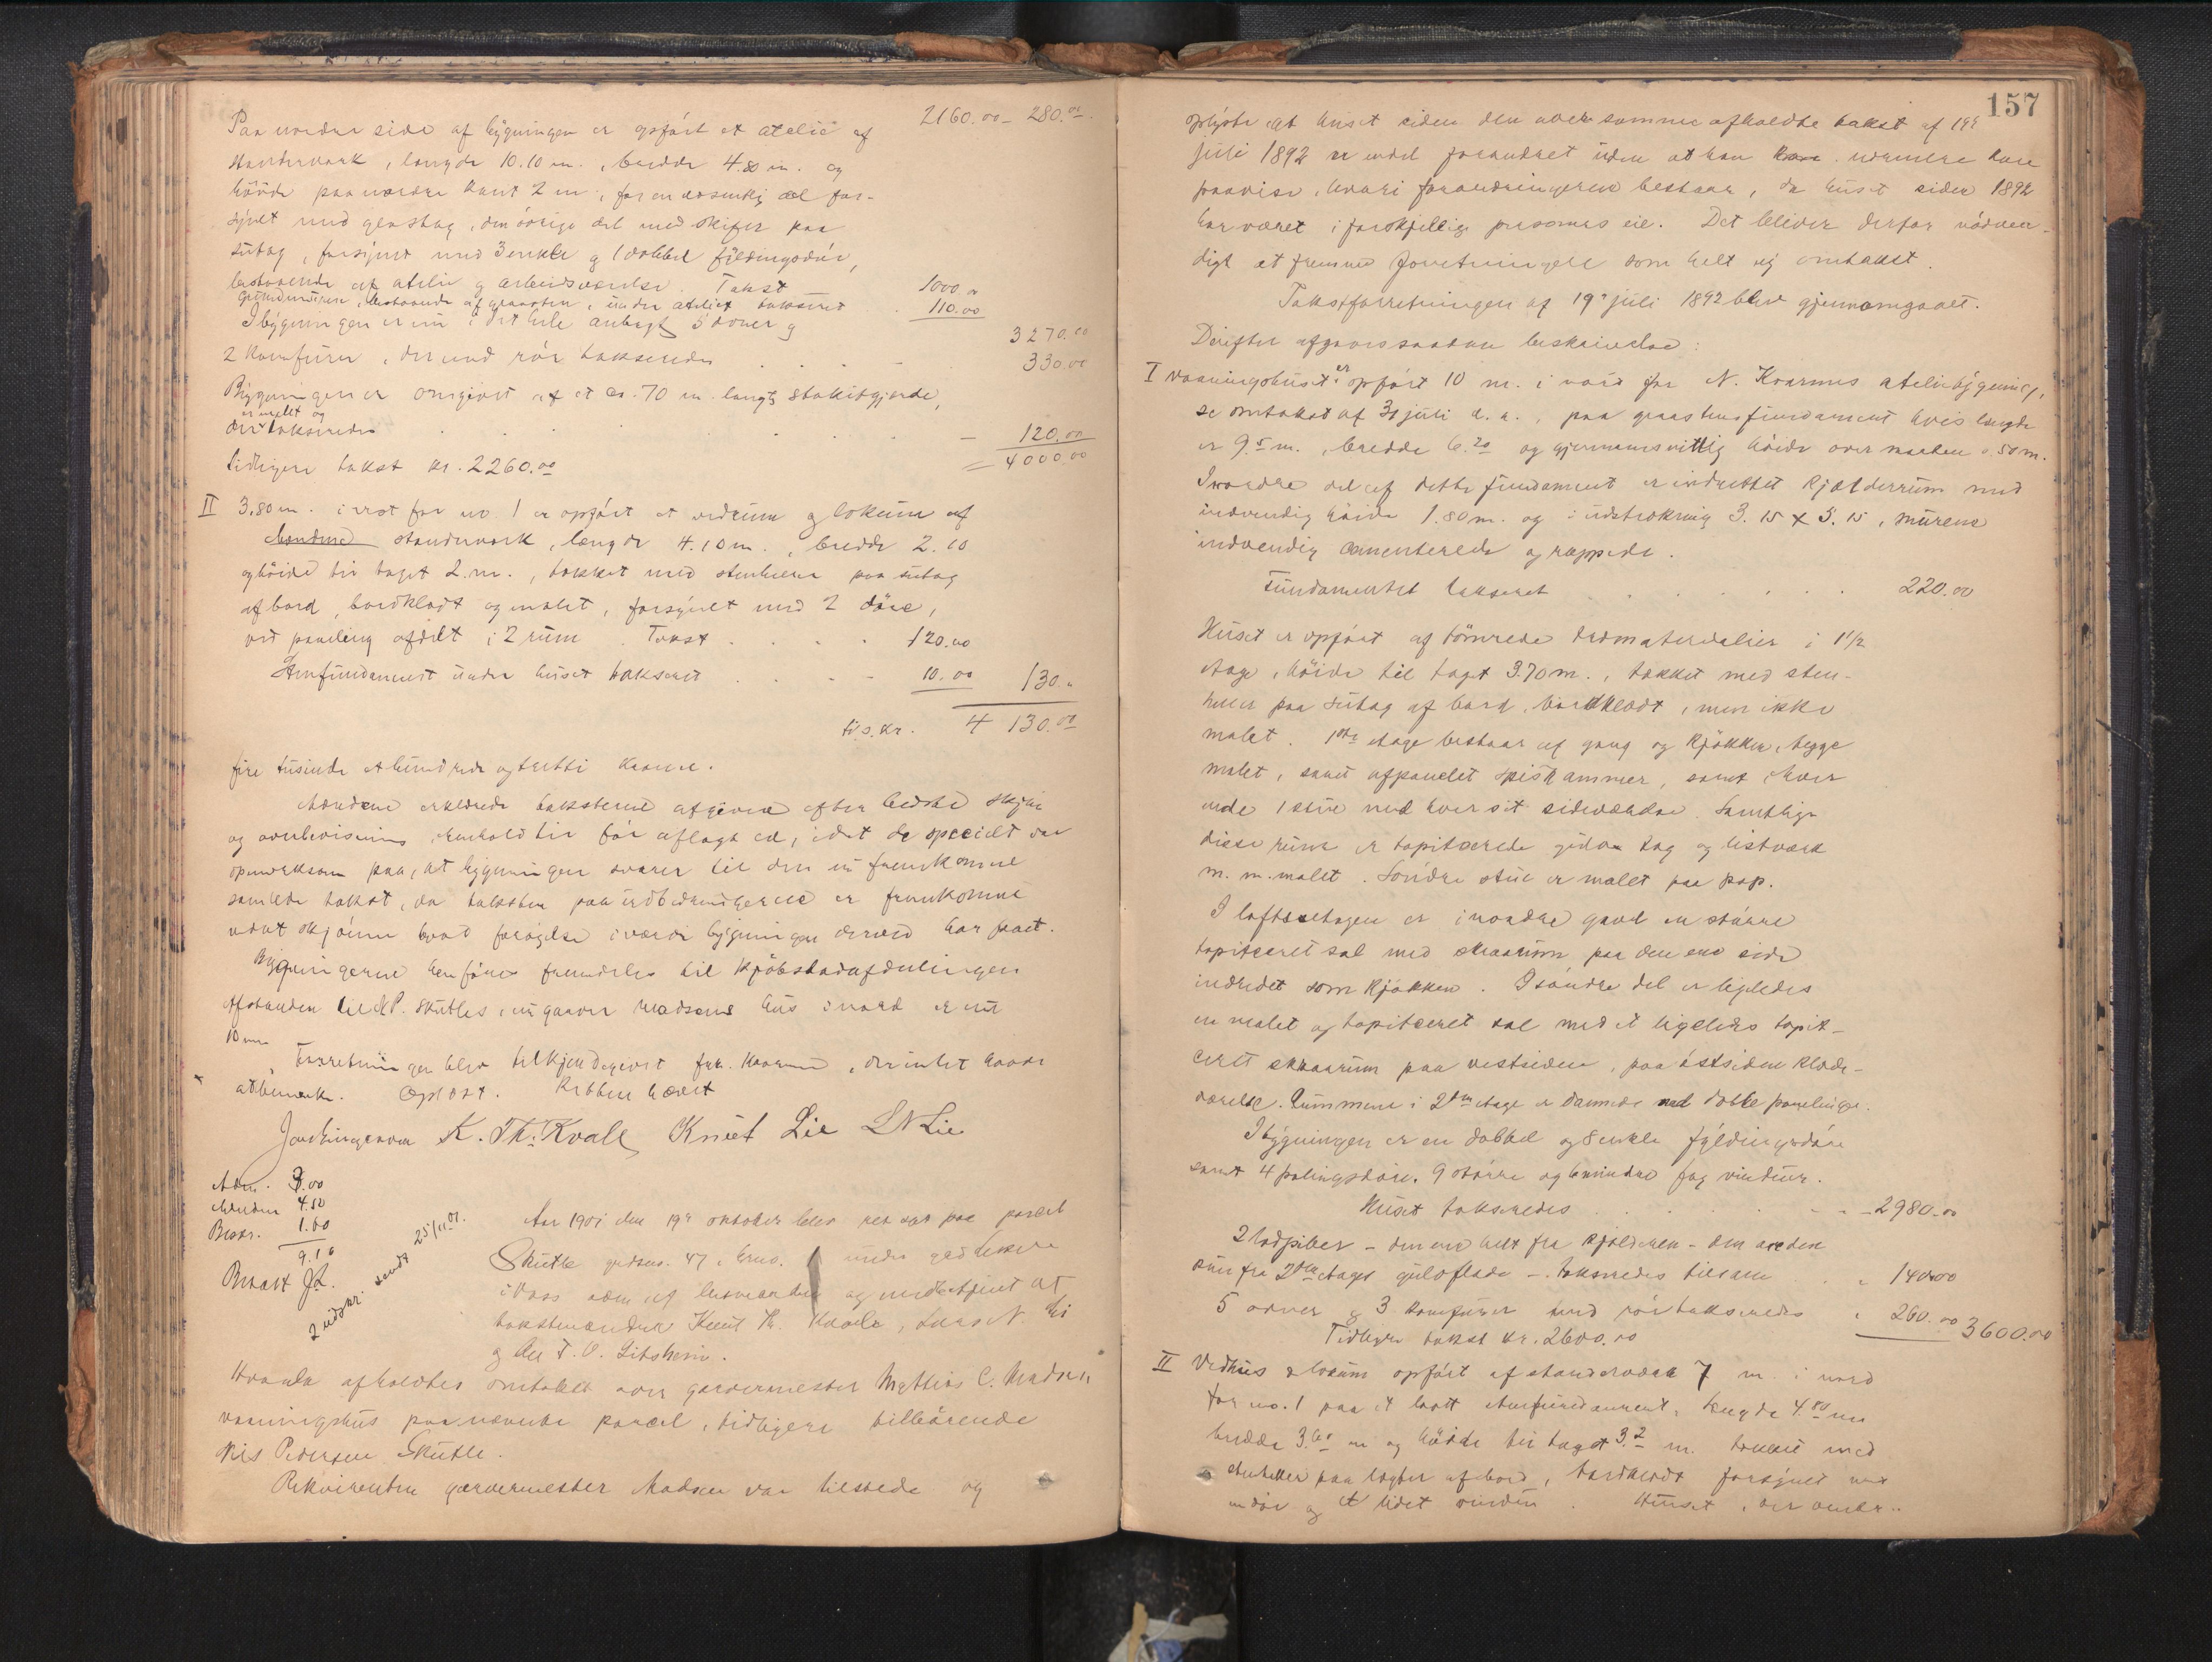 2160.00 - 280.00.
Paa nordre side af bygningen er opført et atelie af
standerverk, længde 10.10 m., bredde 4.80 m. og
høide paa nordre kant 2 m., for en væsentlig del for-
synet med glastag, den øvrige del med skifer paa
sutag, forsynet med 3 enkle g 1 dobbel fyldingsdør,
bestaaende af atelie g arbeidsværelse. Takst 1000.00
Grundmuren, bestaaende af graasten, under ateliet takseret 110.00
I bygningen er nu i det hele anbragt 5 ovner g 3270.00
2 komfurer, der med rør takseredes 330.00
Bygningen er omgivet af et ca. 70 m. langt stakitgjerde,
er malet og
der takseredes 120.00
Tidligere takst kr. 2260.00 = 4000.00
II 3.80 m. i vest for no. 1 er opført et vedrum g lokum af
standerverk, længde 4.10 m., bredde 2.10
og høide til taget 2. m., tækket med stenheller paa sutag
af bord, bordklædt og malet, forsynet med 2 døre,
ved paneling afdelt i 2 rum. Takst 120.00
Stenfundament under huset takseret 10.00 130.
tils. kr. 4130.00
fire tusinde et hundrede og tretti kroner.
Mændene erklærede taksterne afgivne efter bedste skjøn
og overbevisning i henhold til før aflagt ed, idet de specielt var
opmerksom paa, at bygningen svarer til den nu fremkomne
samlede takst, da taksten paa udbedringerne er fremkommet
ved at skjønne hvad forøgelse i værdi bygningen derved har faaet.
Bygningerne henføres fremdeles til Kjøbstadafdelingen
Afstanden til N P. Skutles, nu garver Madsens hus i nord er nu
10 m.
Forretningen blev tilkjendegivet frk. Kvarme, der intet havde
at bemerke. Oplæst. Retten hævet
K. Th. Kvale Knut Lie L N Lie
Adm. 3.00
Mændene 4.50
Beskr. 1.60
9.10
Betalt J L.
2 udskr. sendt 25/11 01.
Aar 1901 den 19de oktober blev ret sat paa parcel
Skutle gardsno. 47, brno. 1 under gad likere
i Voss som af lensmanden og med betjent af
takstmændene Knut Th. Kvale, Lars N. Lie
g Ole T. O. Litsheim.
Hvorda afholdtes omtakst over garvermester Mathias C. Madsen
vaaningshus paa nævnte parcel, tidligere tilhørende
Nils Pedersen Skutle.
Rekvirenten garvermester Madsen var tilstede og
157
oplyste at huset siden den over samme afholdte takst af 19de
juli 1892 er endel forandret uden at han nærmere kan
paavise, hvori forandringerne bestaar, da huset siden 1892
har været i forskjellige personers eie. Det bliver derfor nødven-
digt at fremme forretningen som helt ny omtakst.
Takstforretningen af 19de juli 1892 blev gjennemgaaet.
Derefter afgaves saadan beskrivelse:
I Vaaningshuset er opført 10 m. i nord for N. Kvarmes ateliebygning,
se omtakst af 31 juli d. a., paa graastensfundament hvis længde
er 9.5 m., bredde 6.20 og gjennemsnittlig høide over marken 0.50 m.
I nordre del af dette fundament er indrettet kjælderrum med
indvendig høide 1.80 m. og i udstrækning 3.15 x 5.15, murene
indvendig cementerede og rappede.
Fundamentet takseret 220.00
Huset er opført af tømrede træmaterialier i 1 1/2
etage, høide til taget 3.70 m., tækket med sten-
heller paa sutag af bord, bordklædt, men ikke
malet. 1ste etage bestaar af gang og kjøkken, begge
malet, samt afpanelet spiskammer, samt i hver
ende 1 stue med hver sit sideværelse. Samtlige
disse rum er tapiterede g tag og listværk
m. m. malet. Søndre stue er malet paa pap.
I loftsetagen er i nordre gavl en større
tapitceret sal med skraarum paa den ene side
indredet som kjøkken. I søndre del er ligeledes
en malet og tapitceret sal med et ligeledes tapit-
ceret skraarum paa vestsiden, paa østsiden klæde-
værelse. Rummene i 2den etage er dannede med dobbe panelinger.
I bygningen er en dobbel og 8 enkle fyldingsdøre
samt 4 panlingsdøre. 9 større og 6 mindre fag vinduer.
Huset takseredes 2980.00
2 ladpiber - den ene helt fra kjælderen - den anden
kun fra 2den etages gulvflade - takseredes tilsam 140.00
5 ovner g 3 komfurer med rør takseredes 260.00 3600.00
Tidligere takst kr. 2600.00
II Vedhus g lokum opført af standerværk 7 m. i nord
for no. 1 paa et lavt stenfundament, længde 4.80 m
bredde 3.60 m og høide til taget 3.2 m. tækket med
stenheller paa lægter af bord, bordklædt forsynet med
en dør og et lidet vindu. Huset, der ombr..